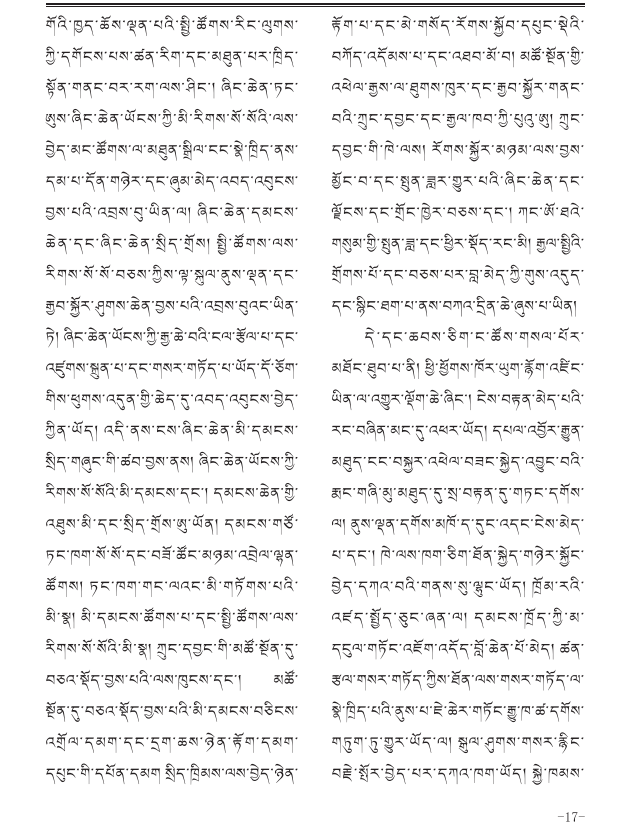 གོའི་ཁྱད་ཆོས་ལྡན་པའི་སྤྱི་ཚོགས་རིང་ལུགས་
ཀྱི་དགོངས་པས་ཚན་རིག་དང་མཐུན་པར་ཁྲིད་
སྟོན་གནང་བར་རག་ལས་ཤིང་། ཞིང་ཆེན་ཏང་
ཨུས་ཞིང་ཆེན་ཡོངས་ཀྱི་མི་རིགས་སོ་སོའི་ལས་
བྱེད་མང་ཚོགས་ལ་མཐུན་སྒྲིལ་ངང་སྣེ་ཁྲིད་ནས་
དམ་པ་དོན་གཉེར་དང་ཞུམ་མེད་འབད་འབུངས་
བྱས་པའི་འབྲས་བུ་ཡིན་ལ། ཞིང་ཆེན་དམངས་
ཆེན་དང་ཞིང་ཆེན་སྲིད་གྲོས། སྤྱི་ཚོགས་ལས་
རིགས་སོ་སོ་བཅས་ཀྱིས་ལྟ་སྐུལ་ནུས་ལྡན་དང་
རྒྱབ་སྐྱོར་ཤུགས་ཆེན་བྱས་པའི་འབྲས་བུའང་ཡིན་
ཏེ། ཞིང་ཆེན་ཡོངས་ཀྱི་རྒྱ་ཆེ་བའི་ངལ་རྩོལ་པ་དང་
འཛུགས་སྐྲུན་པ་དང་གསར་གཏོད་པ་ཡོད་དོ་ཅོག་
གིས་ཕུགས་འདུན་གྱི་ཆེད་དུ་འབད་འབུངས་བྱེད་
ཀྱིན་ཡོད། འདི་ནས་ངས་ཞིང་ཆེན་མི་དམངས་
སྲིད་གཞུང་གི་ཚབ་བྱས་ནས། ཞིང་ཆེན་ཡོངས་ཀྱི་
རིགས་སོ་སོའི་མི་དམངས་དང་། དམངས་ཆེན་གྱི་
འཐུས་མི་དང་སྲིད་གྲོས་ཨུ་ཡོན། དམངས་གཙོ་
ཏང་ཁག་སོ་སོ་དང་བཟོ་ཚོང་མཉམ་འབྲེལ་ལྷན་
ཚོགས། ཏང་ཁག་གང་ལའང་མི་གཏོགས་པའི་
མི་སྣ། མི་དམངས་ཚོགས་པ་དང་སྤྱི་ཚོགས་ལས་
རིགས་སོ་སོའི་མི་སྣ། ཀྲུང་དབྱང་གི་མཚོ་སྔོན་དུ་
བཅའ་སྡོད་བྱས་པའི་ལས་ཁུངས་དང་། མཚོ་
སྔོན་དུ་བཅའ་སྡོད་བྱས་པའི་མི་དམངས་བཅིངས་
འགྲོལ་དམག་དང་དྲག་ཆས་ཉེན་རྟོག་དམག་
དཔུང་གི་དཔོན་དམག སྲིད་ཁྲིམས་ལས་བྱེད་ཉེན་
རྟོག་པ་དང་མེ་གསོད་རོགས་སྐྱོབ་དཔུང་སྡེའི་
བཀོད་འདོམས་པ་དང་འཐབ་མོ་བ། མཚོ་སྔོན་གྱི་
འཕེལ་རྒྱས་ལ་ཐུགས་ཁུར་དང་རྒྱབ་སྐྱོར་གནང་
བའི་ཀྲུང་དབྱང་དང་རྒྱལ་ཁབ་ཀྱི་པུའུ་ཨུ། ཀྲུང་
དབྱང་གི་ཁེ་ལས། རོགས་སྐྱོར་མཉམ་ལས་བྱས་
མྱོང་བ་དང་སྤུན་ཟླར་གྱུར་པའི་ཞིང་ཆེན་དང་
ལྗོངས་དང་གྲོང་ཁྱེར་བཅས་དང་། ཀང་ཨོ་ཐའེ་
གསུམ་གྱི་སྤུན་ཟླ་དང་ཕྱིར་སྡོད་རང་མི། རྒྱལ་སྤྱིའི་
གྲོགས་པོ་དང་བཅས་པར་བླ་མེད་ཀྱི་གུས་འདུད་
དང་སྙིང་ཐག་པ་ནས་བཀའ་དྲིན་ཆེ་ཞུས་པ་ཡིན།
དེ་དང་ཆབས་ཅིག་ང་ཚོས་གསལ་པོར་
མཐོང་ཐུབ་པ་ནི། ཕྱི་ཕྱོགས་ཁོར་ཡུག་རྙོག་འཛིང་
ཡིན་ལ་འགྱུར་ལྡོག་ཆེ་ཞིང་། ངེས་བརྟན་མེད་པའི་
རང་བཞིན་མང་དུ་འཕར་ཡོད། དཔལ་འབྱོར་རྒྱུན་
མཐུད་ངང་བསྐྱར་འཕེལ་བཟང་སྐྱེད་འབྱུང་བའི་
རྨང་གཞི་མུ་མཐུད་དུ་སྲ་བརྟན་དུ་གཏང་དགོས་
ལ། ནུས་ལྡན་དགོས་མཁོ་ད་དུང་འདང་ངེས་མེད་
པ་དང་། ཁེ་ལས་ཁག་ཅིག་ཐོན་སྐྱེད་གཉེར་སྐྱོང་
བྱེད་དཀའ་བའི་གནས་སུ་ལྷུང་ཡོད། ཁྲོམ་རའི་
འཛད་སྤྱོད་ཅུང་ཞན་ལ། དམངས་ཁྲོད་ཀྱི་མ་
དངུལ་གཏོང་འཇོག་འདོད་བློ་ཆེན་པོ་མེད། ཚན་
རྩལ་གསར་གཏོད་ཀྱིས་ཐོན་ལས་གསར་གཏོད་ལ་
སྣེ་ཁྲིད་པའི་ནུས་པ་ཇེ་ཆེར་གཏོང་རྒྱུ་ཁ་ཚ་དགོས་
གཏུག་ཏུ་གྱུར་ཡོད་ལ། སྒུལ་ཤུགས་གསར་རྙིང་
བརྗེ་སྤོར་བྱེད་པར་དཀའ་ཁག་ཡོད། སྐྱེ་ཁམས་
-17-